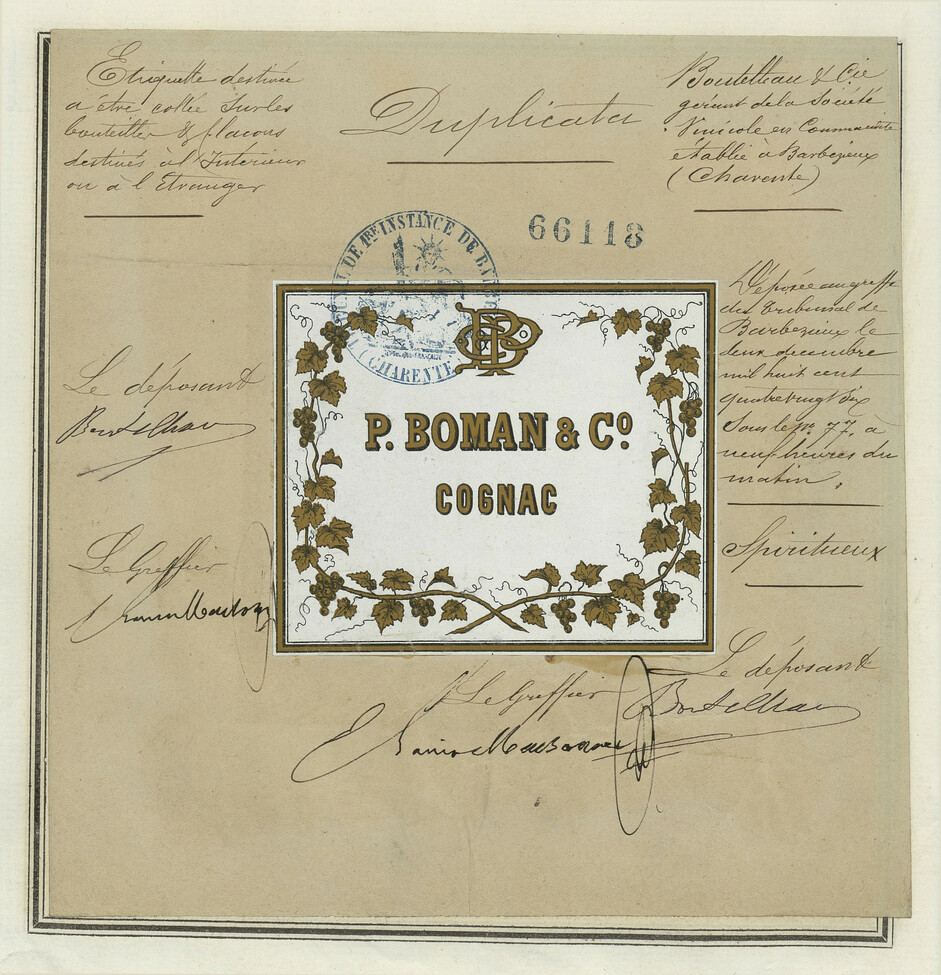 Etiquette destinée
a être collée sur les
bouteilles & flacons
destinés à l'Interieur
ou à l'Etranger
Duplicata
Boutelleau & Cie
gérant de la Société
Vinicole en Commandite
établie à Barbezieux
(Charente)
66118
DE 1RE INSTANCE DE
CHARENTE
Déposée au greffe
du tribunal de
Barbezieux le
deux decembre
mil huit cent
quatrevingt dix
sous le no 77, à
neuf heures du
matin.
Spiritueux
Le déposant
Boutelleau
Le Greffier
P. BOMAN & Co
COGNAC
Le déposant
Boutelleau
Le Greffier